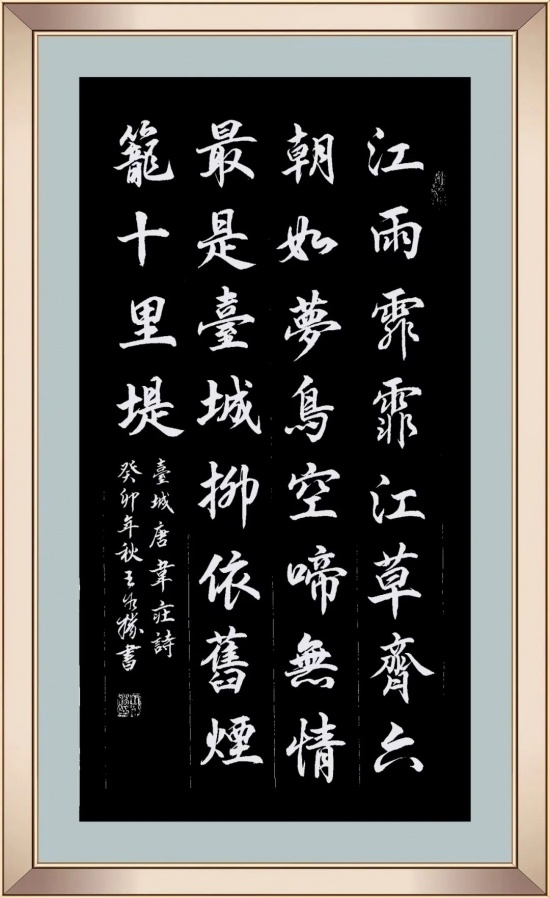 江雨霏霏江草齊六
朝如夢鳥空啼無情
最是臺城柳依舊煙
籠十里堤
臺城唐韋莊詩
癸卯年秋王書